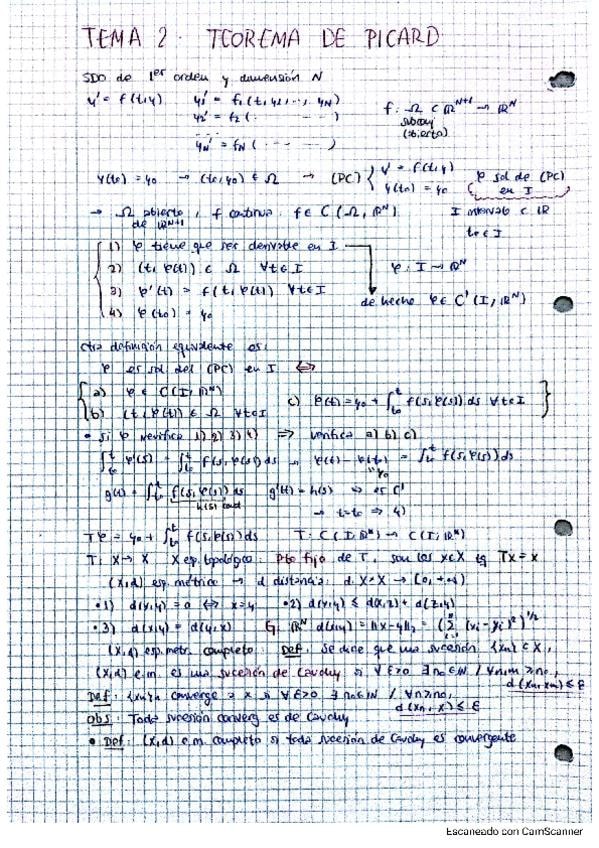 TEMA 2. TEOREMA DE PICARD
SDO de 1er orden y dimensión N
y' = f(t,y)   y1' = f1(t, y1, ..., yN)   f: Ω ⊂ ℝ^{N+1} → ℝ^N
y2' = f2( ... )   (abierto)
yN' = fN( ... )
y(t0) = y0 → (t0,y0) ∈ Ω → (PC) { y' = f(t,y)   φ sol de (PC)
y(t0) = y0   en I
→ Ω abierto, f continua. f ∈ C(Ω, ℝ^N)   I intervalo ⊂ ℝ
de ℝ^{N+1}   t0 ∈ I
1) φ tiene que ser derivable en I
2) (t, φ(t)) ⊂ Ω ∀t∈I   φ: I → ℝ^N
3) φ'(t) = f(t, φ(t)) ∀t∈I
de hecho φ ∈ C'(I, ℝ^N)
4) φ(t0) = y0
Otra definición equivalente es:
φ es sol del (PC) en I ⟺
a) φ ∈ C(I, ℝ^N)   c) φ(t) = y0 + ∫_{t0}^t f(s, φ(s)) ds ∀t∈I
b) (t, φ(t)) ∈ Ω ∀t∈I
• si φ verifica 1) 2) 3) 4) ⟹ verifica a) b) c)
∫_{t0}^t φ'(s) = ∫_{t0}^t f(s, φ(s)) ds → φ(t) - φ(t0) = ∫_{t0}^t f(s, φ(s)) ds
y0
g(t) = ∫_{t0}^t f(s, φ(s)) ds   g'(t) = h(t) → es C'
h(s) cont
→ t=t0 → 4)
Tφ = y0 + ∫_{t0}^t f(s, φ(s)) ds   T: C(I, ℝ^N) → C(I, ℝ^N)
T: X → X   X esp. topológico. Pto fijo de T, son los x∈X tq Tx = x
(X,d) esp. métrico → d distancia: d: X×X → [0, +∞)
•1) d(x,y) = 0 ⟺ x=y   •2) d(x,y) ≤ d(x,z) + d(z,y)
•3) d(x,y) = d(y,x)   Ej. ℝ^N d(x,y) = ||x-y||_2 = (∑_{i=1}^N (xi - yi)^2)^{1/2}
(X,d) esp. metr. completo: Def: se dice que una sucesión {xn} ⊂ X,
(X,d) e.m. es una sucesión de Cauchy si ∀ε>0 ∃n0∈ℕ / ∀n,m ≥ n0,
d(xn, xm) ≤ ε
Def: {xn}n converge a x si ∀ε>0 ∃n0∈ℕ / ∀n≥n0,
d(xn, x) ≤ ε
Obs: Toda sucesión converg. es de Cauchy
• Def: (X,d) e.m. completo si toda sucesión de Cauchy es convergente
Escaneado con CamScanner